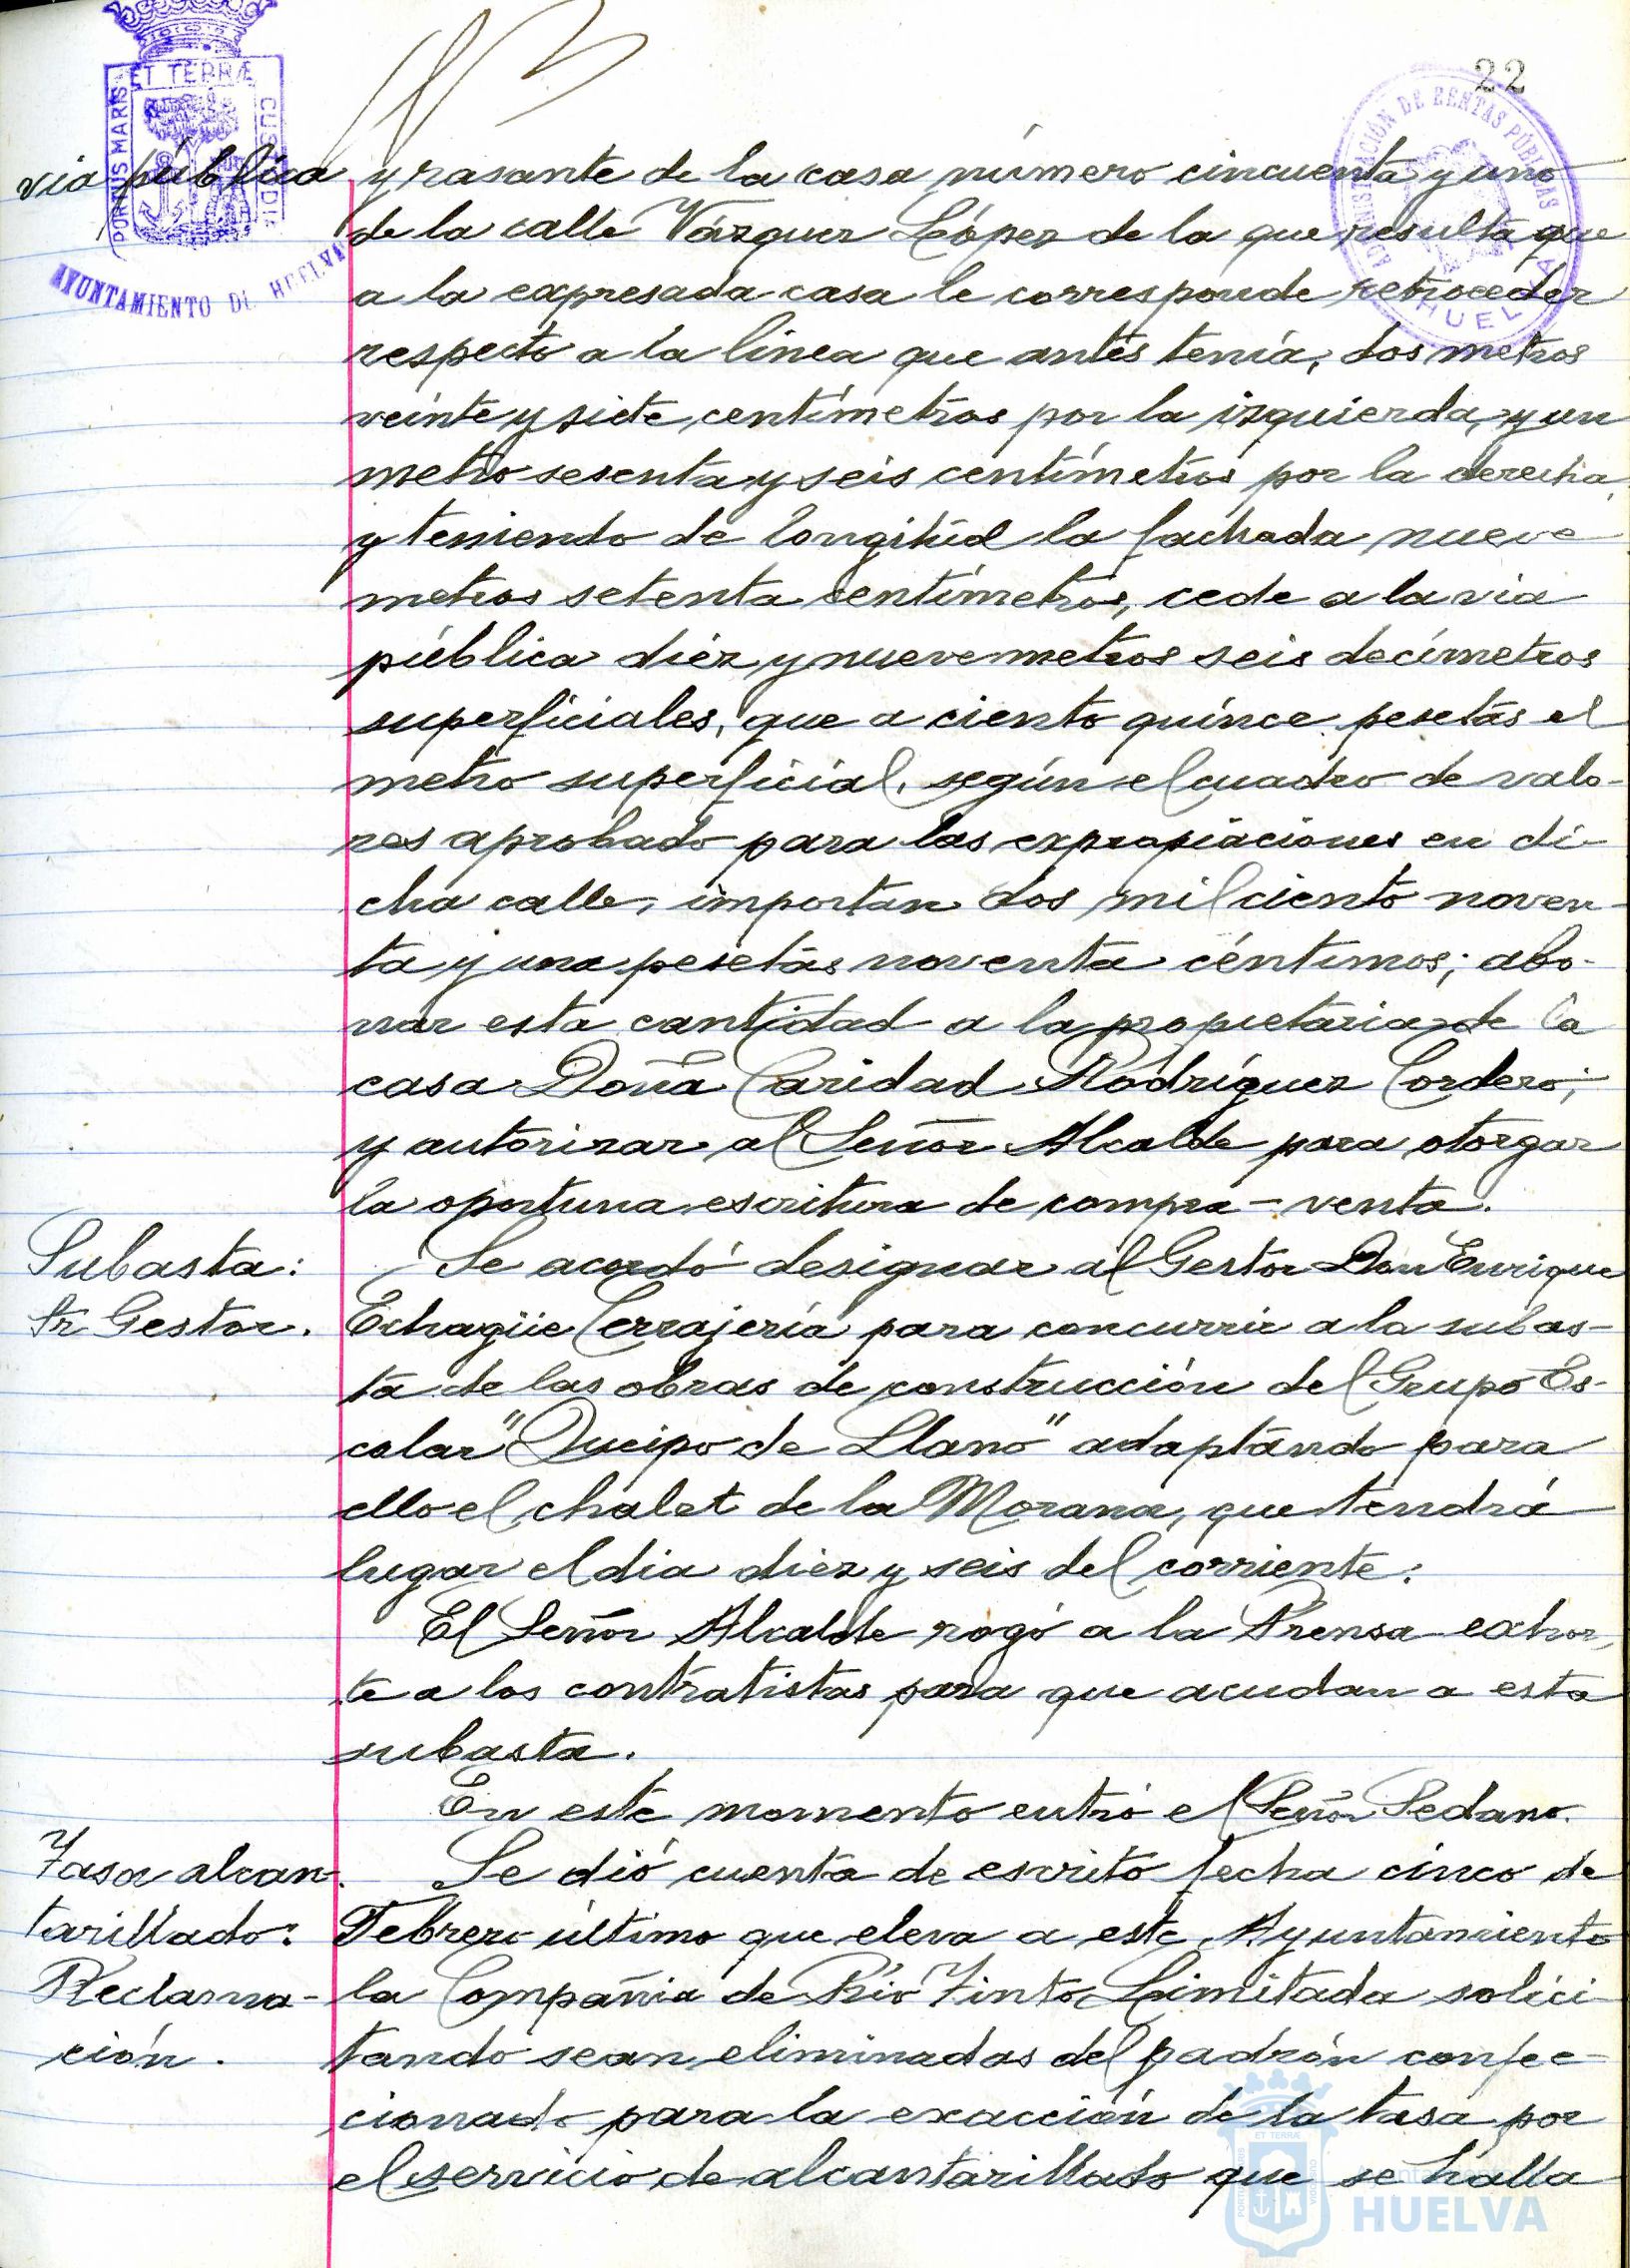 22
ET TERRÆ
PORTUS MARIS
CUSTODIA
AYUNTAMIENTO DE HUELVA
ADMINISTRACIÓN DE RENTAS PÚBLICAS
HUELVA
via pública
y rasante de la casa número cincuenta y uno
de la calle Vázquez López de la que resulta que
a la expresada casa le corresponde retroceder
respecto a la línea que antes tenía, dos metros
veinte y siete centímetros por la izquierda, y un
metro sesenta y seis centímetros por la derecha,
y teniendo de longitud la fachada nueve
metros setenta centímetros, cede a la via
pública diez y nueve metros seis decímetros
superficiales, que a ciento quince pesetas el
metro superficial, según el cuadro de valo-
res aprobado para las expropiaciones en di-
cha calle, importan dos mil ciento noven-
ta y una pesetas noventa céntimos; abo-
nar esta cantidad a la propietaria de la
casa Doña Caridad Rodríguez Cordero;
y autorizar al Señor Alcalde para otorgar
la oportuna escritura de compra-venta.
Subasta:
Sr Gestor.
Se acordó designar al Gestor Don Enrique
Echagüe Cerrajería para concurrir a la subas-
ta de las obras de construcción del Grupo Es-
colar "Queipo de Llano" adaptando para
ello el chalet de la Morana, que tendrá
lugar el dia diez y seis del corriente.
El Señor Alcalde rogó a la Prensa exhor-
te a los contratistas para que acudan a esta
subasta.
En este momento entró el Señor Sedano.
Tasa alcan-
tarillado:
Reclama-
ción.
Se dió cuenta de escrito fecha cinco de
Febrero último que eleva a este Ayuntamiento
la Compañia de Rio Tinto Limitada solici-
tando sean eliminadas del padrón confec-
cionado para la exacción de la tasa por
el servicio de alcantarillado que se halla
HUELVA